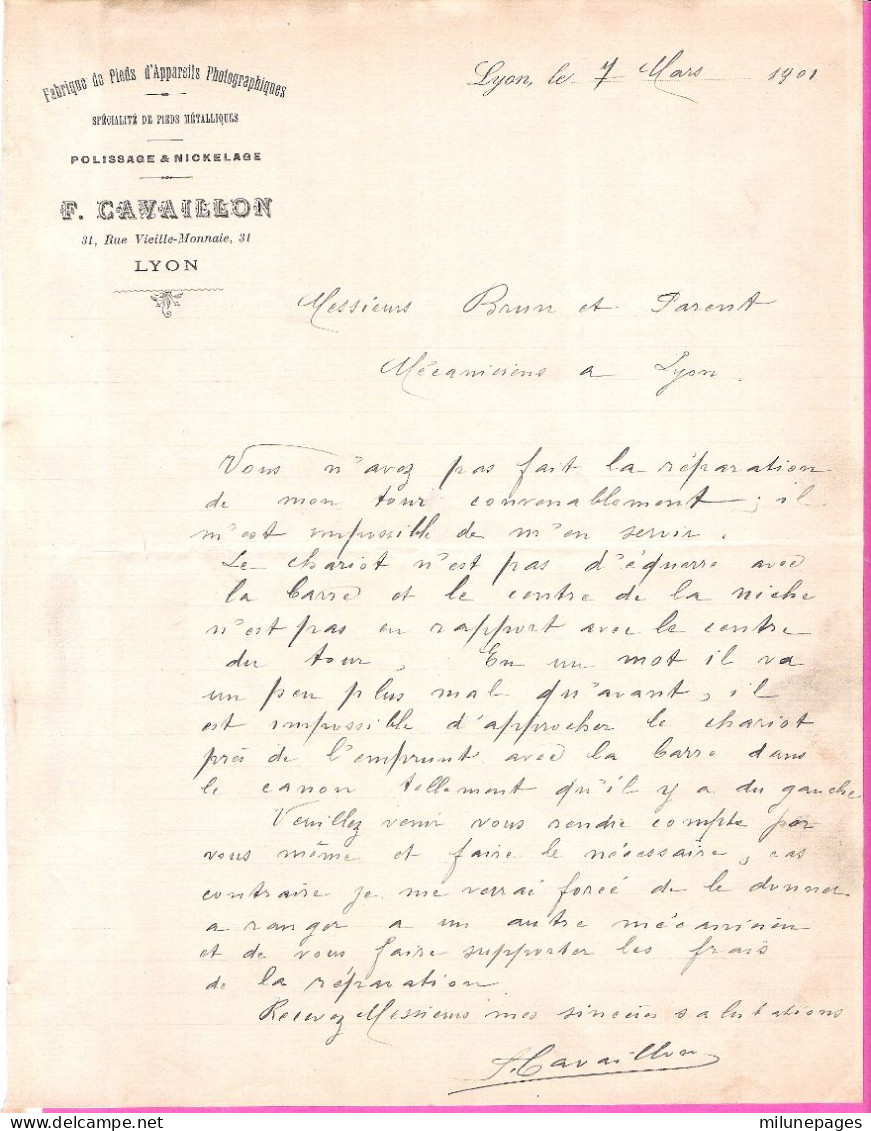 Fabrique de Pieds d'Appareils Photographiques
SPÉCIALITÉ DE PIEDS MÉTALLIQUES
POLISSAGE & NICKELAGE
F. CAVAILLON
31, Rue Vieille-Monnaie, 31
LYON
Lyon, le 7 Mars 1901
Messieurs Brun et Parent
Mécaniciens a Lyon.
Vous n'avez pas fait la réparation
de mon tour convenablement, il
m'est impossible de m'en servir.
Le chariot n'est pas d'équerre avec
la barre et le centre de la niche
n'est pas en rapport avec le centre
du tour, En un mot il va
un peu plus mal qu'avant, il
est impossible d'approcher le chariot
près de l'emprunt avec la barre dans
le canon tellement qu'il y a du gauche
Veuillez venir vous rendre compte par
vous même et faire le nécessaire, cas
contraire je me verrai forcé de le donner
a ranger a un autre mécanicien
et de vous faire supporter les frais
de la réparation
Recevez Messieurs mes sincères salutations
F. Cavaillon
delcampe.net
milunepages